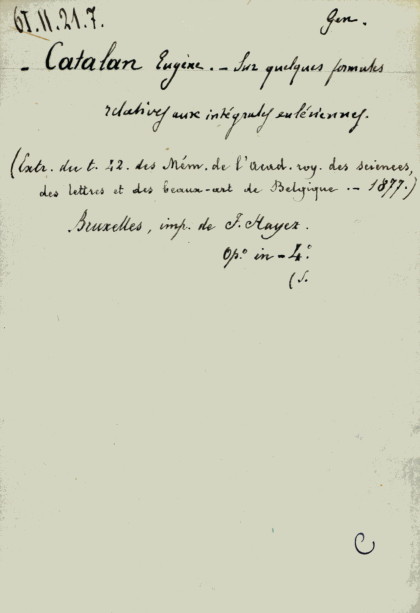 6I.II.21.7. Gen.
- Catalan Eugène. - Sur quelques formules
relatives aux intégrales eulériennes.
(Extr. du t. 42. des Mém. de l'Acad. roy. des sciences,
des lettres et des beaux-art de Belgique. - 1877.)
Bruxelles, imp. de F. Hayez.
Op.º in-4.º
(S.
C